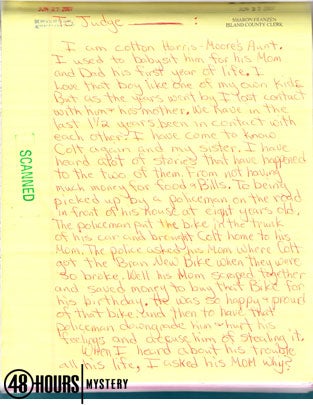 JUN 27 2007
JUN 27 2007
SHARON FRANZEN
ISLAND COUNTY CLERK
To Judge
I am colton Harris-Moore's Aunt.
I used to babysit him for his Mom
and Dad his first year of life. I
Love that boy like one of my own kids.
But as the years went by I lost contact
with him & his mother. We have in the
last 1 1/2 years been in contact with
each other. I have come to know
Colt again and my sister. I have
heard alot of stories that have happened
to the two of them. From not having
much money for food & Bills. To being
picked up by a policeman on the road
in front of his house at eight years old.
The policeman put the bike in the trunk
of his car and brought Colt home to his
Mom. The police asked his Mom where Colt
got the Bran New bike when they were
so broke. Well his Mom scraped together
and saved money to buy that Bike for
his birthday. He was so happy & proud
of that bike. and then to have that
policeman downgrade him & hurt his
feelings and accuse him of stealing it.
When I heard about his trouble
all his life, I asked his MOM why?
SCANNED
48 HOURS MYSTERY